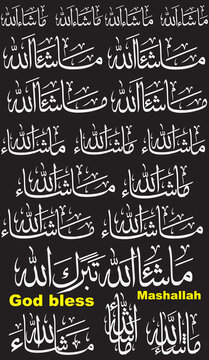 ما شاء الله ما شاء الله ما شاء الله ما شاء الله
ما شاء الله ما شاء الله
ما شاء الله ما شاء الله
ما شاء الله ما شاء الله ما شاء الله
ما شاء الله ما شاء الله
ما شاء الله ما شاء الله
ما شاء الله ما شاء الله
ما شاء الله تبرك الله
God bless Mashallah
ما شاء الله ما شاء الله ما شاء الله